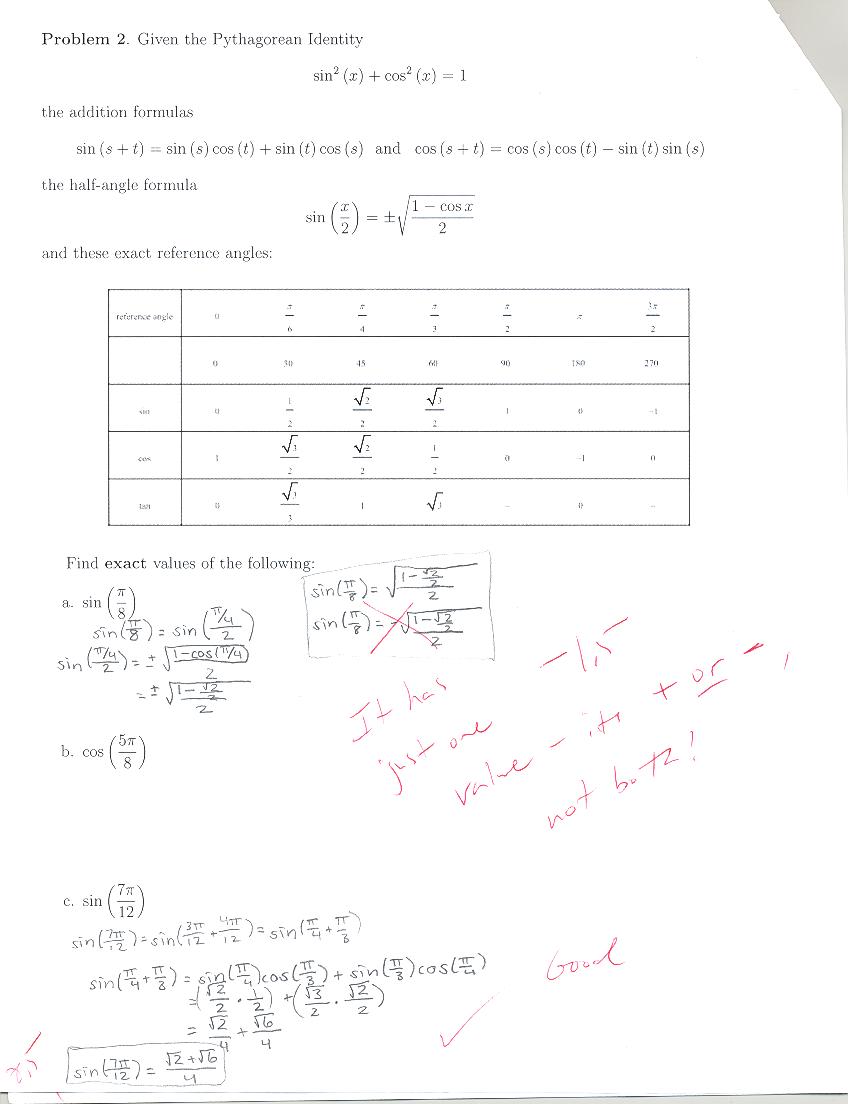 Problem 2. Given the Pythagorean Identity
sin² (x) + cos² (x) = 1
the addition formulas
sin (s + t) = sin (s) cos (t) + sin (t) cos (s) and cos (s + t) = cos (s) cos (t) − sin (t) sin (s)
the half-angle formula
sin (x/2) = ±√((1 − cos x)/2)
and these exact reference angles:
reference angle 0 π/6 π/4 π/3 π/2 π 3π/2
0 30 45 60 90 180 270
sin 0 1/2 √2/2 √3/2 1 0 −1
cos 1 √3/2 √2/2 1/2 0 −1 0
tan 0 √3/3 1 √3 – 0 –
Find exact values of the following:
a. sin (π/8)
sin(π/8) = sin((π/4)/2)
sin((π/4)/2) = ± √((1−cos(π/4))/2)
= ± √((1−√2/2)/2)
sin(π/8) = √((1−√2/2)/2)
sin(π/8) = −√((1−√2/2)/2)
−1.5
It has
just one
value – it's + or −,
not both!
b. cos (5π/8)
c. sin (7π/12)
sin(7π/12) = sin(3π/12 + 4π/12) = sin(π/4 + π/3)
sin(π/4 + π/3) = sin(π/4)cos(π/3) + sin(π/3)cos(π/4)
= (√2/2 · 1/2) + (√3/2 · √2/2)
= √2/4 + √6/4
sin(7π/12) = (√2+√6)/4
Good